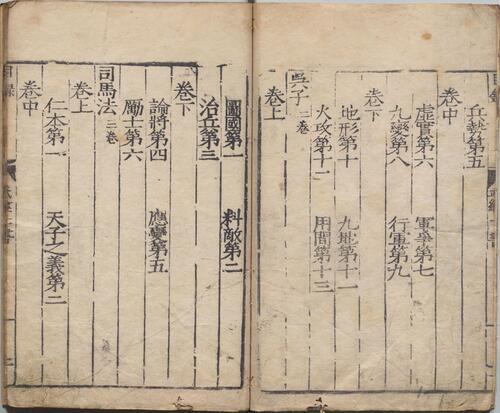 兵勢第五
卷中
虛實第六 軍爭第七
九變第八 行軍第九
卷下
地形第十 九地第十一
火攻第十二 用間第十三
吳子 二卷
卷上
圖國第一 料敵第二
治兵第三
卷下
論將第四 應變第五
勵士第六
司馬法 三卷
卷上
仁本第一 天子之義第二
卷中
目錄